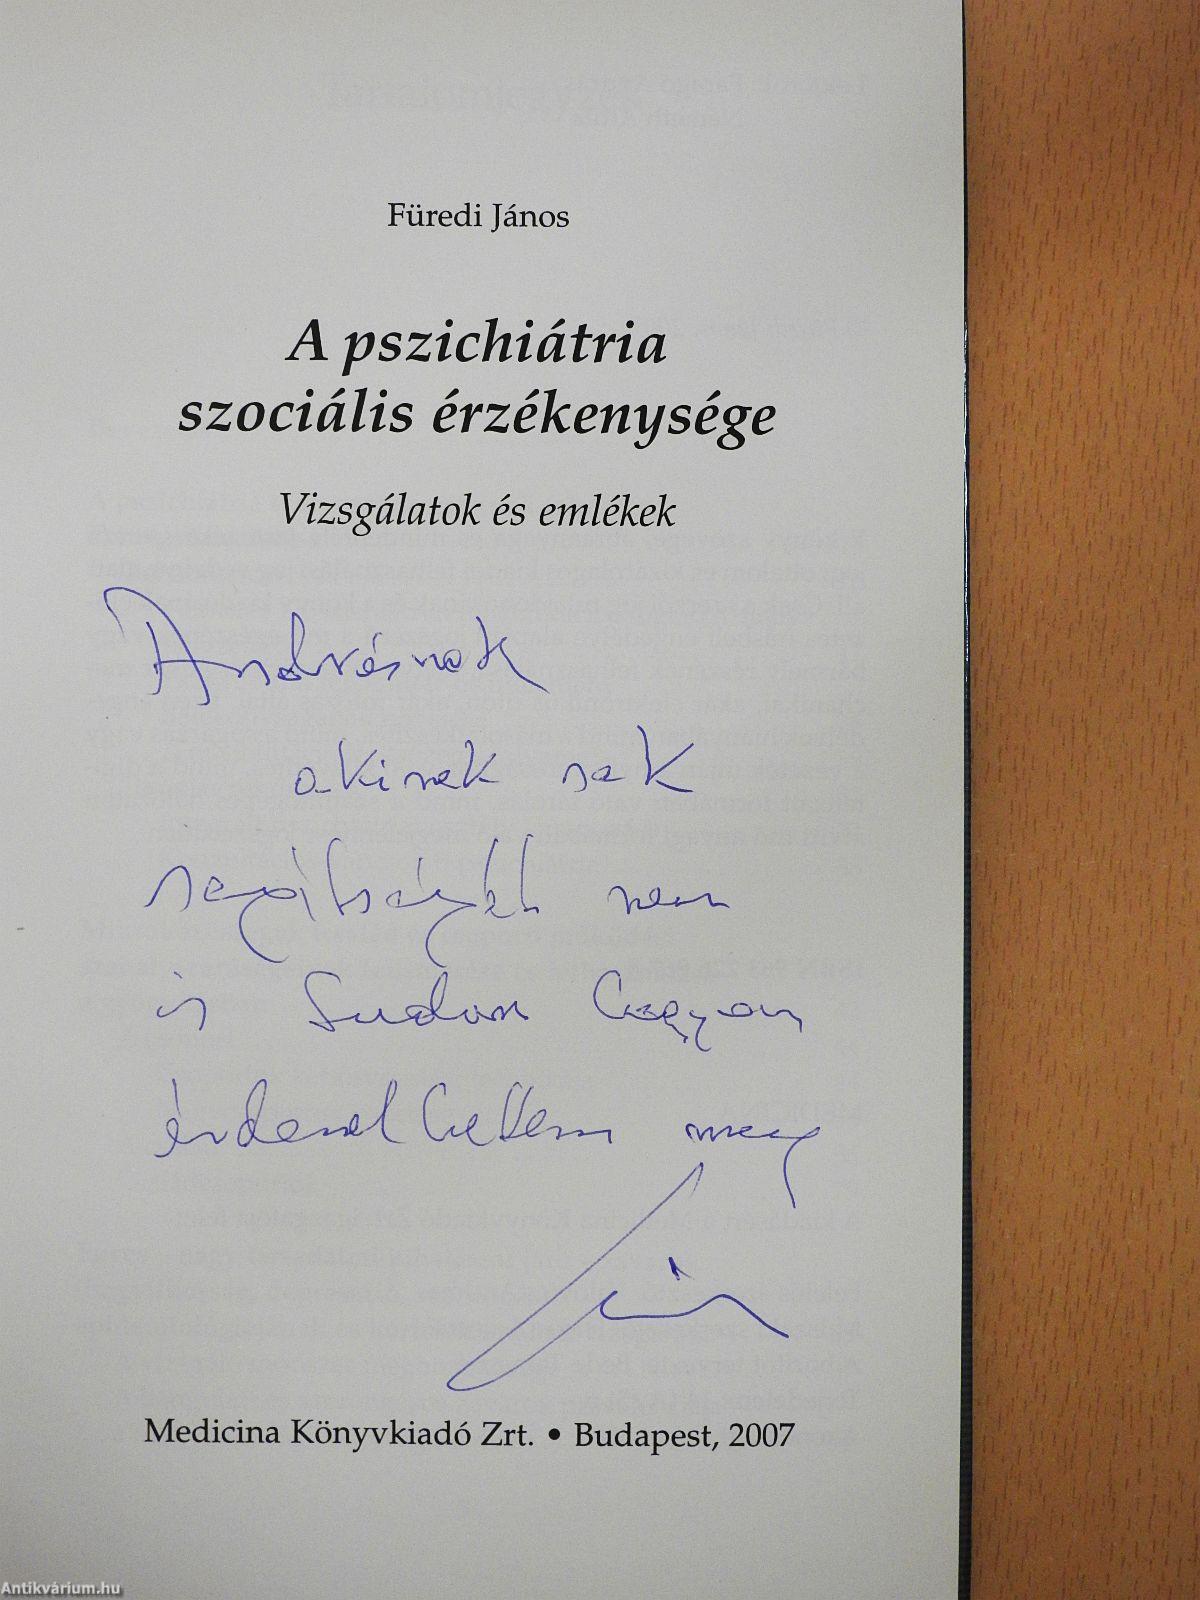 Füredi János
A pszichiátria
szociális érzékenysége
Vizsgálatok és emlékek
Andrásnak
akinek sok
segítségét nem
is tudom hogyan
érdemelhettem meg
Medicina Könyvkiadó Zrt. • Budapest, 2007
Antikvárium.hu